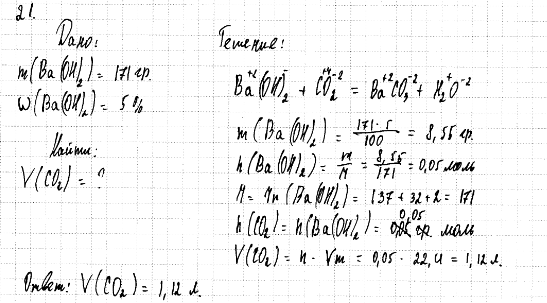 21.
Дано:
m(Ba(OH)₂) = 171 гр.
w(Ba(OH)₂) = 5 %
Найти:
V(CO₂) = ?
Решение:
Ba⁺²(OH)⁻₂ + C⁺⁴O₂⁻² = Ba⁺²CO₂⁻² + H₂⁺O⁻²
m(Ba(OH)₂) = 171·5/100 = 8,55 гр.
n(Ba(OH)₂) = m/M = 8,55/171 = 0,05 моль
M = Mr(Ba(OH)₂) = 137 + 32 + 2 = 171
n(CO₂) = n(Ba(OH)₂) = 0,05 моль
V(CO₂) = n · Vm = 0,05 · 22,4 = 1,12 л.
Ответ: V(CO₂) = 1,12 л.